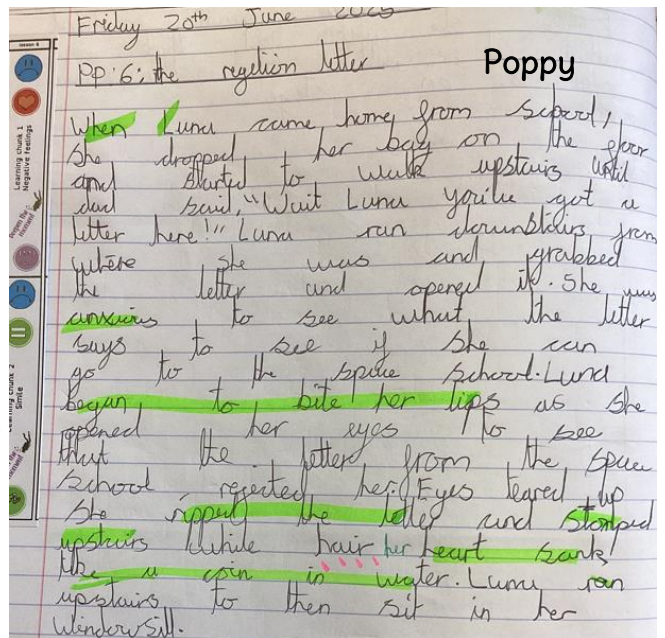 Friday 20th June 2025
PP:6: the regetion letter
Poppy
When Luna came home from school,
she dropped her bag on the floor
and started to walk upstairs until
dad said, "Wait Luna you've got a
letter here!" Luna ran downstairs from
where she was and grabbed
the letter and opened it. She was
anxious to see what the letter
says to see if she can
go to the space school. Luna
began to bite her lips as she
opened her eyes to see
that the letter from the space
school rejected her. Eyes teared up
she ripped the letter and stomped
upstairs while hair her heart sank
like a coin in water. Luna ran
upstairs to then sit in her
windowsill.
Learning chunk 1
Negative feelings
Learning chunk 2
Simile